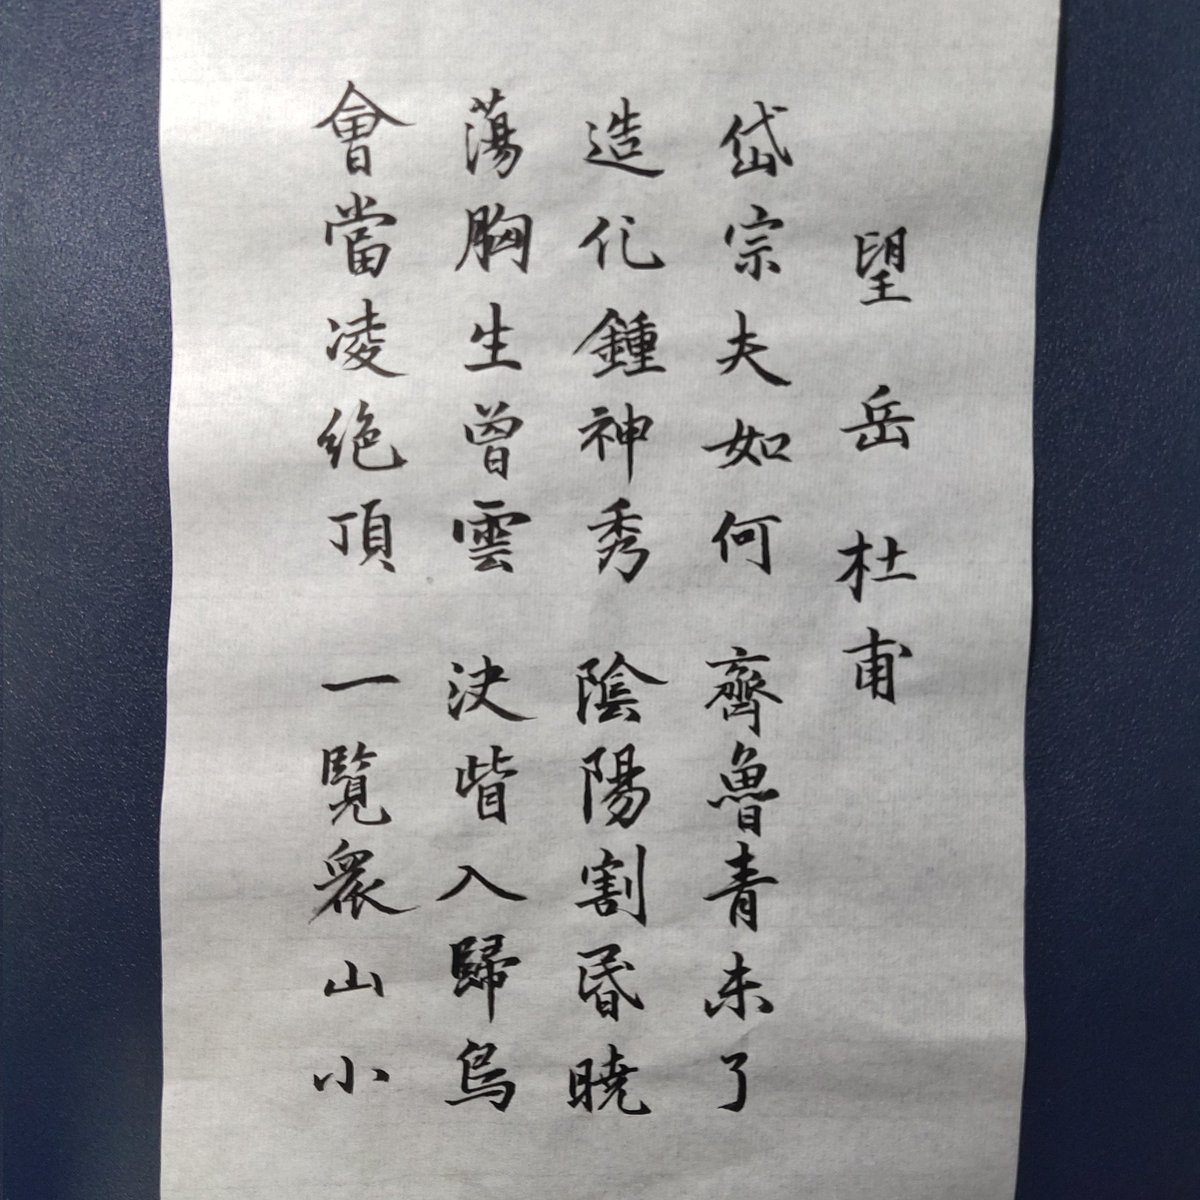 望岳 杜甫
岱宗夫如何 齊魯青未了
造化鍾神秀 陰陽割昏曉
蕩胸生曾雲 決眥入歸鳥
會當凌絕頂 一覽衆山小